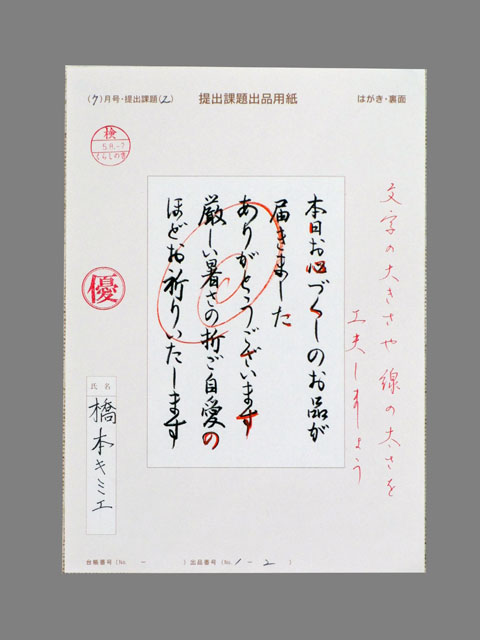 (7)月号・提出課題(2)
提出課題出品用紙
はがき・裏面
検
58.-7
くらしの書
優
本日お心づくしのお品が
届きました
ありがとうございます
厳しい暑さの折ご自愛の
ほどお祈りいたします
文字の大きさや線の太さを
工夫しましょう
氏名
橋本キミエ
台帳番号(No. - )出品番号(No. 1-2 )